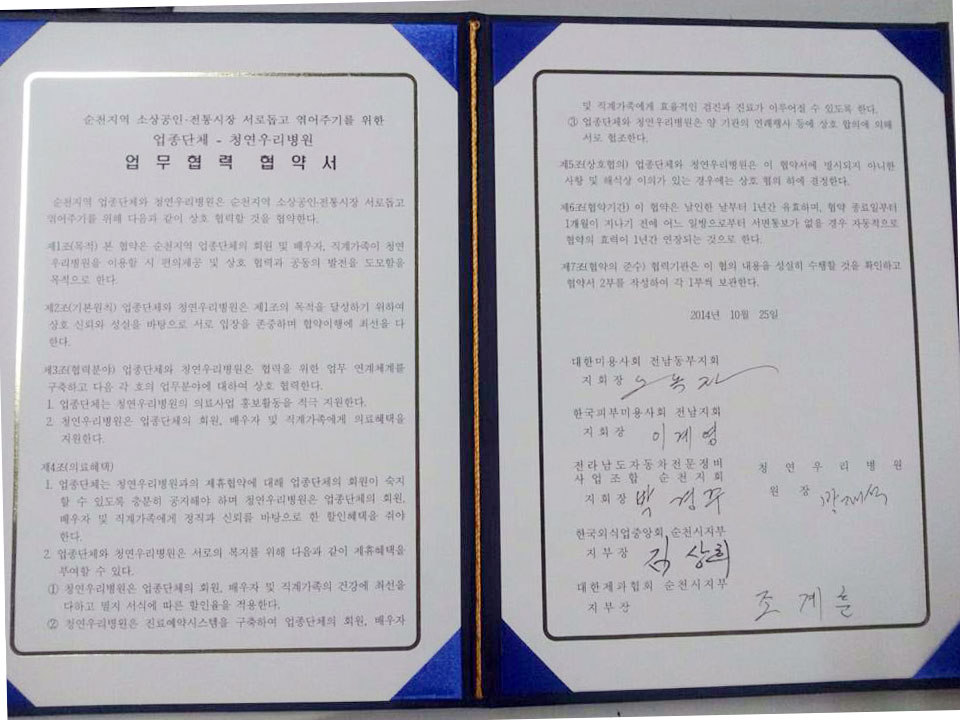 순천지역 소상공인·전통시장 서로돕고 엮어주기를 위한
업종단체 - 청연우리병원
업 무 협 력 협 약 서
순천지역 업종단체와 청연우리병원은 순천지역 소상공인·전통시장 서로돕고
엮어주기를 위해 다음과 같이 상호 협력할 것을 협약한다.
제1조(목적) 본 협약은 순천지역 업종단체의 회원 및 배우자, 직계가족이 청연
우리병원을 이용할 시 편의제공 및 상호 협력과 공동의 발전을 도모함을
목적으로 한다.
제2조(기본원칙) 업종단체와 청연우리병원은 제1조의 목적을 달성하기 위하여
상호 신뢰와 성실을 바탕으로 서로 입장을 존중하며 협약이행에 최선을 다
한다.
제3조(협력분야) 업종단체와 청연우리병원은 협력을 위한 업무 연계체계를
구축하고 다음 각 호의 업무분야에 대하여 상호 협력한다.
1. 업종단체는 청연우리병원의 의료사업 홍보활동을 적극 지원한다.
2. 청연우리병원은 업종단체의 회원, 배우자 및 직계가족에게 의료혜택을
지원한다.
제4조(의료혜택)
1. 업종단체는 청연우리병원과의 제휴협약에 대해 업종단체의 회원이 숙지
할 수 있도록 충분히 공지해야 하며 청연우리병원은 업종단체의 회원,
배우자 및 직계가족에게 정직과 신뢰를 바탕으로 한 할인혜택을 줘야
한다.
2. 업종단체와 청연우리병원은 서로의 복지를 위해 다음과 같이 제휴혜택을
부여할 수 있다.
① 청연우리병원은 업종단체의 회원, 배우자 및 직계가족의 건강에 최선을
다하고 별지 서식에 따른 할인율을 적용한다.
② 청연우리병원은 진료예약시스템을 구축하여 업종단체의 회원, 배우자
및 직계가족에게 효율적인 검진과 진료가 이루어질 수 있도록 한다.
③ 업종단체와 청연우리병원은 양 기관의 연례행사 등에 상호 합의에 의해
서로 협조한다.
제5조(상호협의) 업종단체와 청연우리병원은 이 협약서에 명시되지 아니한
사항 및 해석상 이의가 있는 경우에는 상호 협의 하에 결정한다.
제6조(협약기간) 이 협약은 날인한 날부터 1년간 유효하며, 협약 종료일부터
1개월이 지나기 전에 어느 일방으로부터 서면통보가 없을 경우 자동적으로
협약의 효력이 1년간 연장되는 것으로 한다.
제7조(협약의 준수) 협력기관은 이 협의 내용을 성실히 수행할 것을 확인하고
협약서 2부를 작성하여 각 1부씩 보관한다.
2014년 10월 25일
대한미용사회 전남동부지회
지 회 장
한국피부미용사회 전남지회
지 회 장 이계영
전라남도자동차전문정비
사업조합 순천지회
지 회 장 박경무
청 연 우 리 병 원
원 장
한국외식업중앙회 순천시지부
지 부 장 김상희
대한제과협회 순천시지부
지 부 장 조계훈